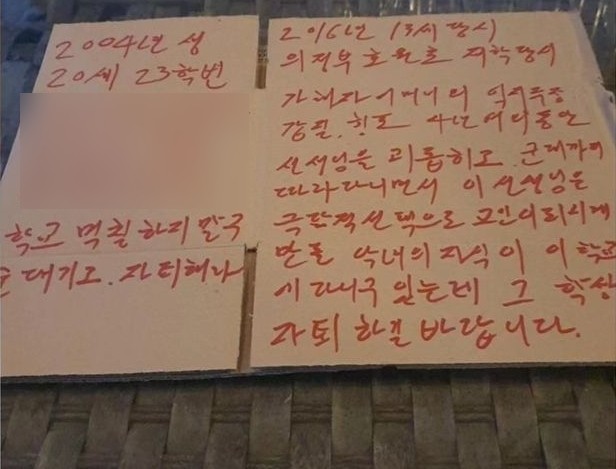 2004년 생
20세 23학번
학교 먹칠하지 말구
대기고. 자퇴해라
2016년 13세 당시
의정부 호원초 재학당시
가해자 어머니의 억지주장
갑질, 횡포 4년여의 동안
선생님을 괴롭히고. 군대까지
따라다니면서 이 선생님은
극단적선택으로 고인이되시게
만들 악녀의 자식이 이 학교
에 다니구 있는데 그 학생
자퇴 하길 바랍니다.